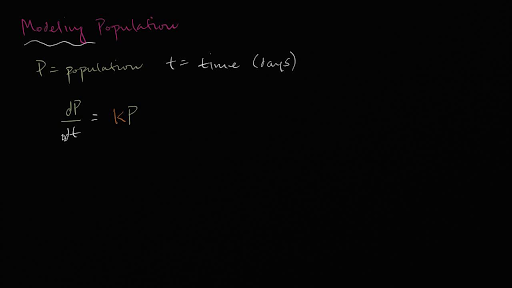 Modeling Population
P = population t = time (days)
dP/dt = kP